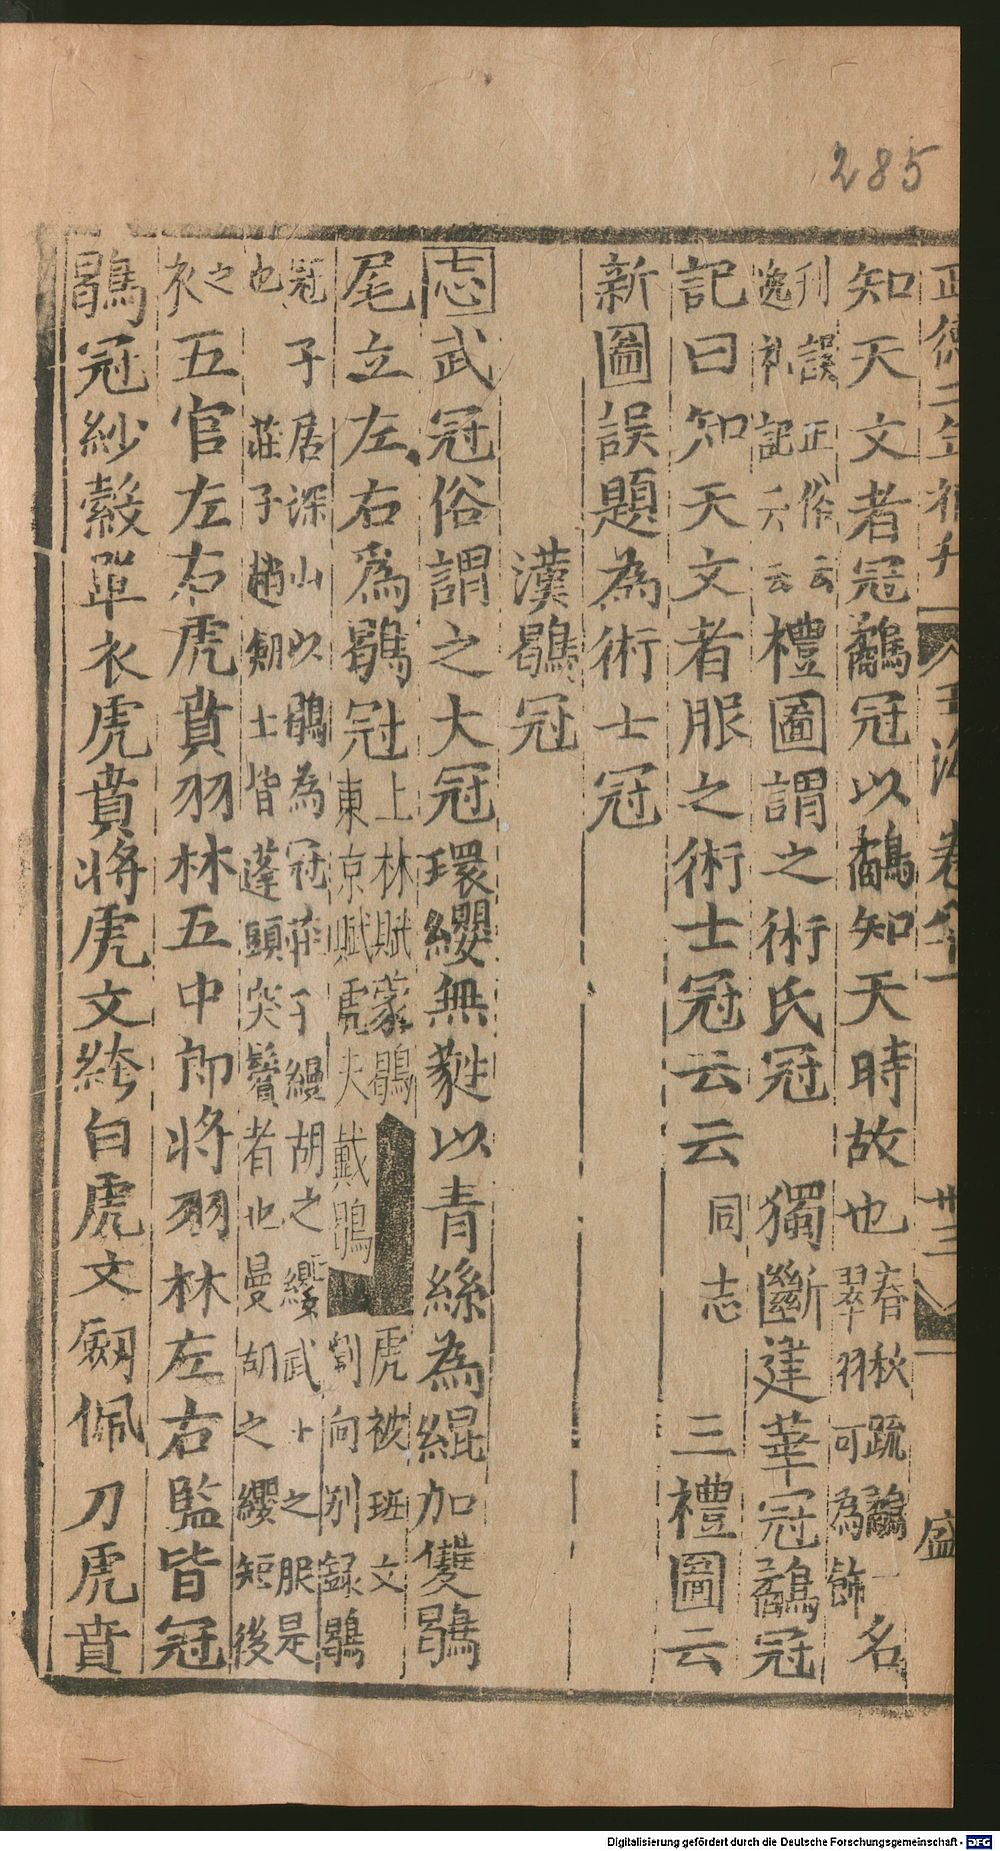 285
正德二年補刊 玉海卷 卅三 盛
知天文者冠鷸冠以鷸知天時故也春秋疏鷸一名翠羽可為飾
刊誤正俗云逸礼記云云禮圖謂之術氏冠 獨斷建華冠鷸冠
記曰知天文者服之術士冠云云同志 三禮圖云
新圖誤題為術士冠
漢鶡冠
志武冠俗謂之大冠環纓無蕤以青絲為緄加雙鶡
尾立左右爲鶡冠上林賦蒙鶡虎被班文東京賦虎夫戴鶡劉向别録鶡
冠子居深山以鶡為冠莊子縵胡之纓武士之服是也莊子趙劒士皆蓬頭突鬢者也曼胡之纓短後
之衣五官左右虎賁羽林五中郎將羽林左右監皆冠
鶡冠紗縠單衣虎賁將虎文絝白虎文劒佩刀虎賁
Digitalisierung gefördert durch die Deutsche Forschungsgemeinschaft - DFG